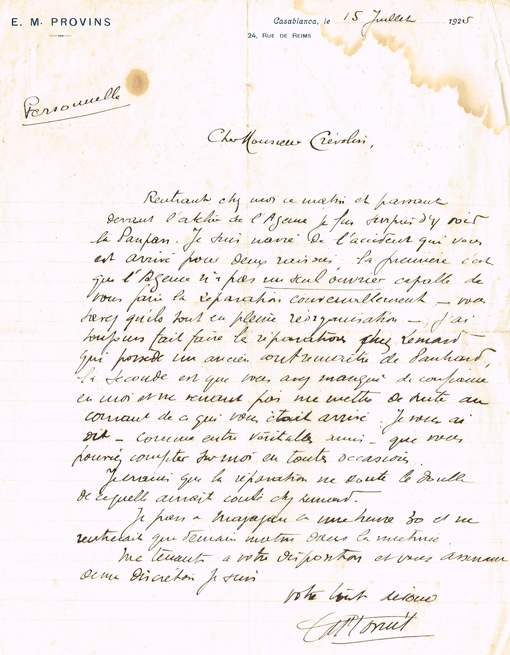 E. M. PROVINS
Casablanca, le 15 Juillet 1925
24, RUE DE REIMS
Personnelle
Cher Monsieur Crévolin,
Rentrant chez moi ce matin et passant
devant l'atelier de l'Agence je fus surpris d'y voir
la Panpan. Je suis navré de l'accident qui vous
est arrivé pour deux raisons. La première c'est
que l'Agence n'a pas un seul ouvrier capable de
vous faire la réparation convenablement - vous
savez qu'ils sont en pleine réorganisation -, j'ai
toujours fait faire les réparations chez Renard
qui possède un ancien contremaître de Panhard,
la seconde est que vous avez manqué de confiance
en moi et ne venant pas me mettre de suite au
courant de ce qui vous était arrivé. Je vous ai
dit - comme entre véritables amis - que vous
pouviez compter sur moi en toutes occasions.
Je crains que la réparation ne coute le double
de ce qu'elle aurait couté chez Renard.
Je pars à Mazagan à une heure 30 et ne
rentrerai que demain matin dans la matinée.
Me tenant à votre disposition et vous assurant
de ma discrétion je suis
votre tout dévoué